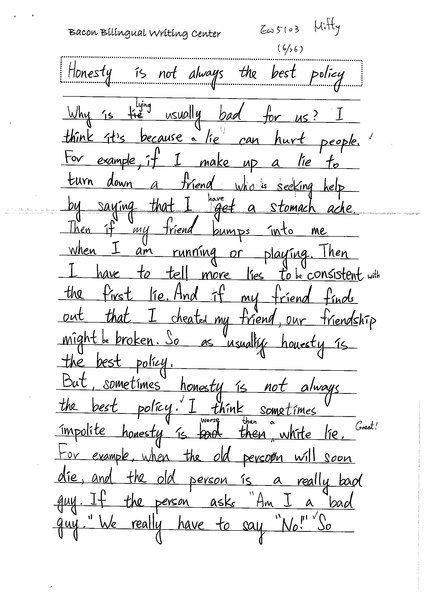 Bacon Bilingual Writing Center
Miffy
(6/26)
Honesty is not always the best policy
lying
Why is lie usually bad for us? I
think it's because a lie can hurt people.
For example, if I make up a lie to
turn down a friend who is seeking help
have
by saying that I get a stomach ache.
Then if my friend bumps into me
when I am running or playing. Then
I have to tell more lies to be consistent with
the first lie. And if my friend finds
out that I cheated my friend, our friendship
might be broken. So as usually honesty is
the best policy.
But, sometimes honesty is not always
the best policy. I think sometimes
worse then a
impolite honesty is bad then white lie. Great!
For example, when the old person will soon
die, and the old person is a really bad
guy. If the person asks "Am I a bad
guy." We really have to say "No!" So